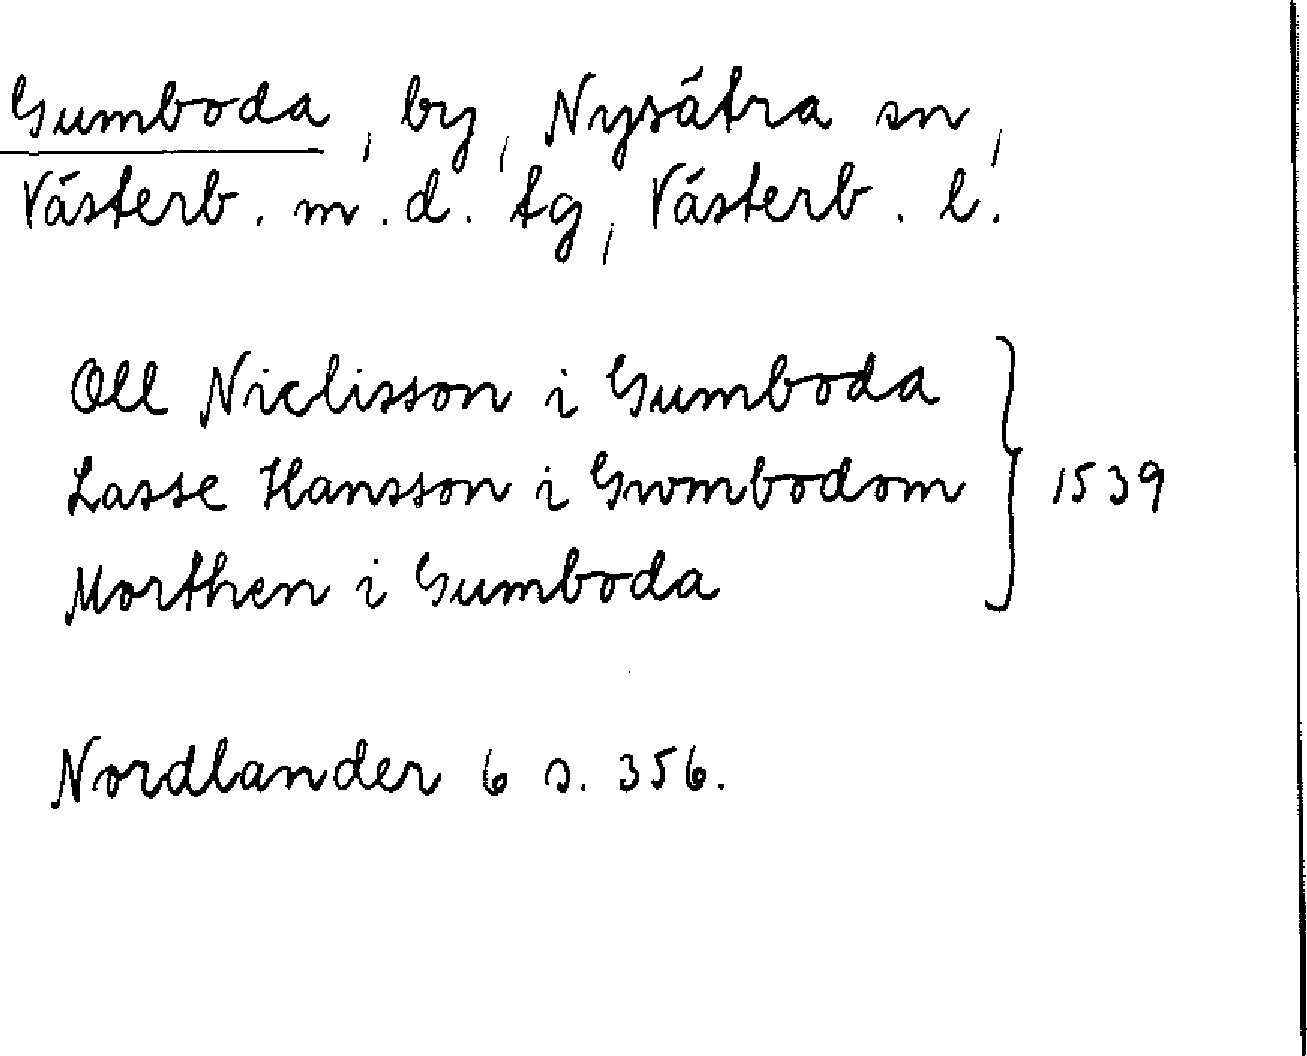 Gumboda, by, Nysätra sn,
Västerb. m. d. tg, Västerb. l.
Oll Niclisson i Gumboda
Lasse Hansson i Gwmbodom } 1539
Morthen i Gumboda
Nordlander 6 s. 356.